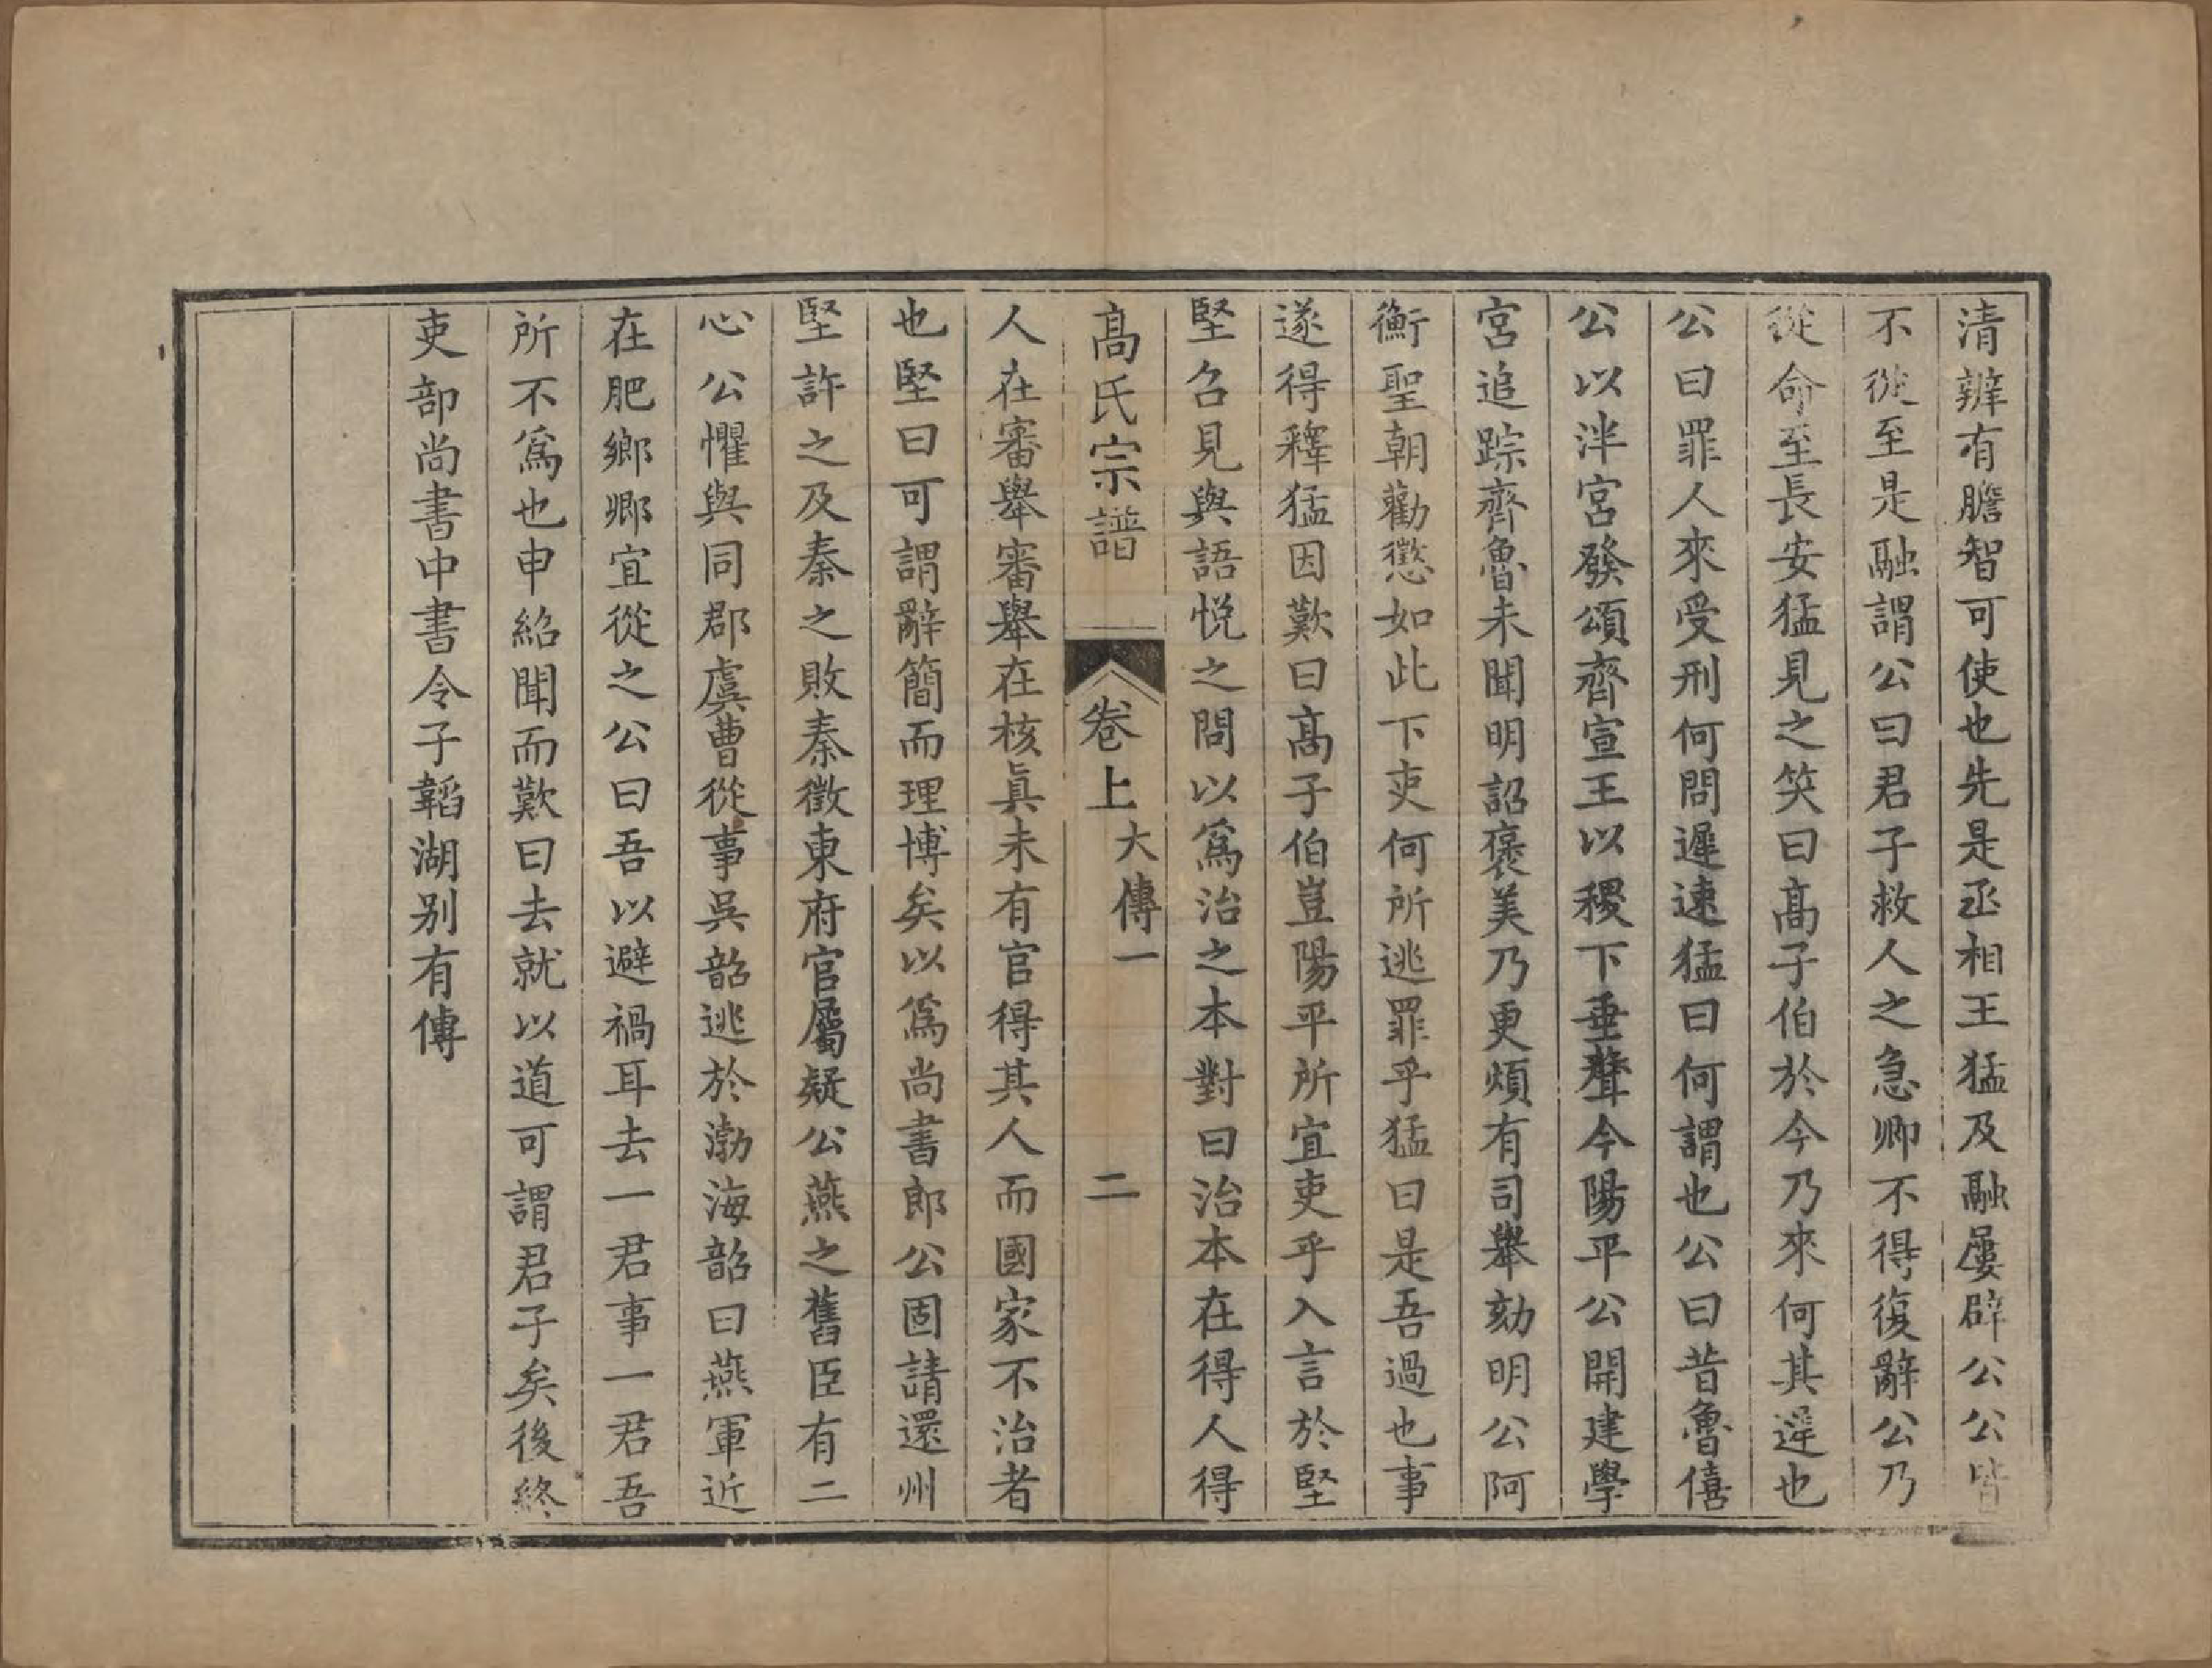 清辨有膽智可使也先是丞相王猛及融屢辟公公皆
不從至是融謂公曰君子救人之急卿不得復辭公乃
從命至長安猛見之笑曰高子伯於今乃來何其遲也
公曰罪人來受刑何問遲速猛曰何謂也公曰昔魯僖
公以泮宮發頌齊宣王以稷下垂聲今陽平公開建學
宮追踪齊魯未聞明詔褒美乃更煩有司舉劾明公阿
衡聖朝勸懲如此下吏何所逃罪乎猛曰是吾過也事
遂得釋猛因歎曰高子伯豈陽平所宜吏乎入言於堅
堅召見與語悅之問以爲治之本對曰治本在得人得
高氏宗譜 卷上 大傳一 二
人在審舉審舉在核真未有官得其人而國家不治者
也堅曰可謂辭簡而理博矣以爲尚書郎公固請還州
堅許之及秦之敗秦徵東府官屬疑公燕之舊臣有二
心公懼與同郡虞曹從事吳韶逃於渤海韶曰燕軍近
在肥鄉卿宜從之公曰吾以避禍耳去一君事一君吾
所不爲也申紹聞而歎曰去就以道可謂君子矣後終
吏部尚書中書令子韜湖别有傳